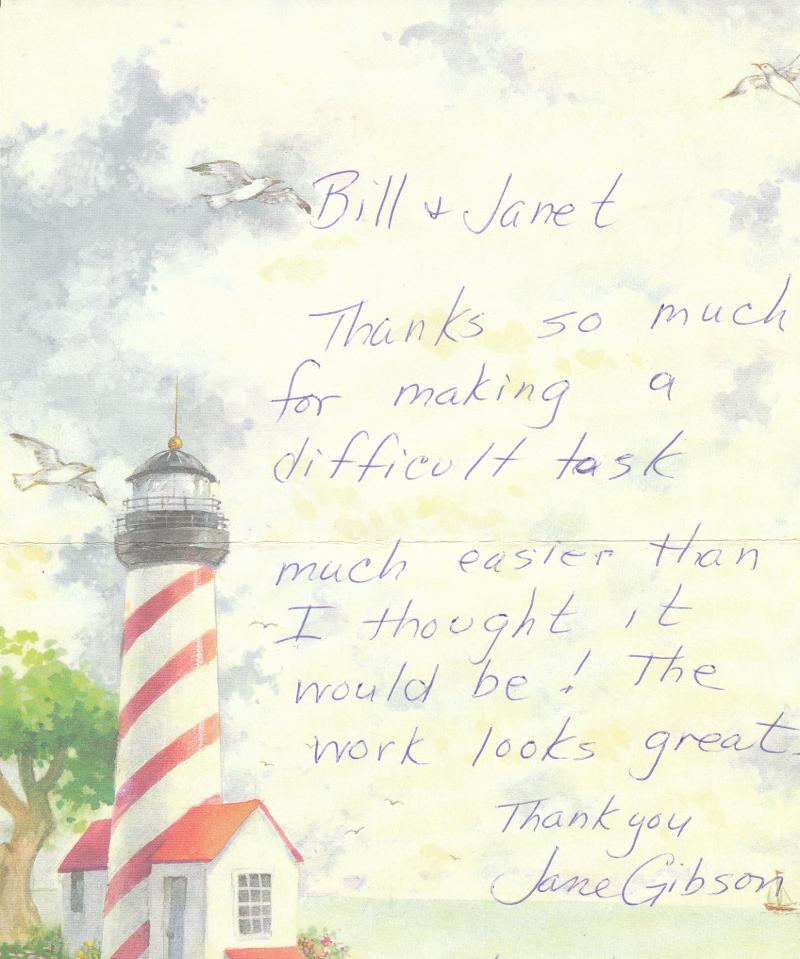 Bill & Janet
Thanks so much
for making a
difficult task
much easier than
I thought it
would be! The
work looks great.
Thank you
Jane Gibson